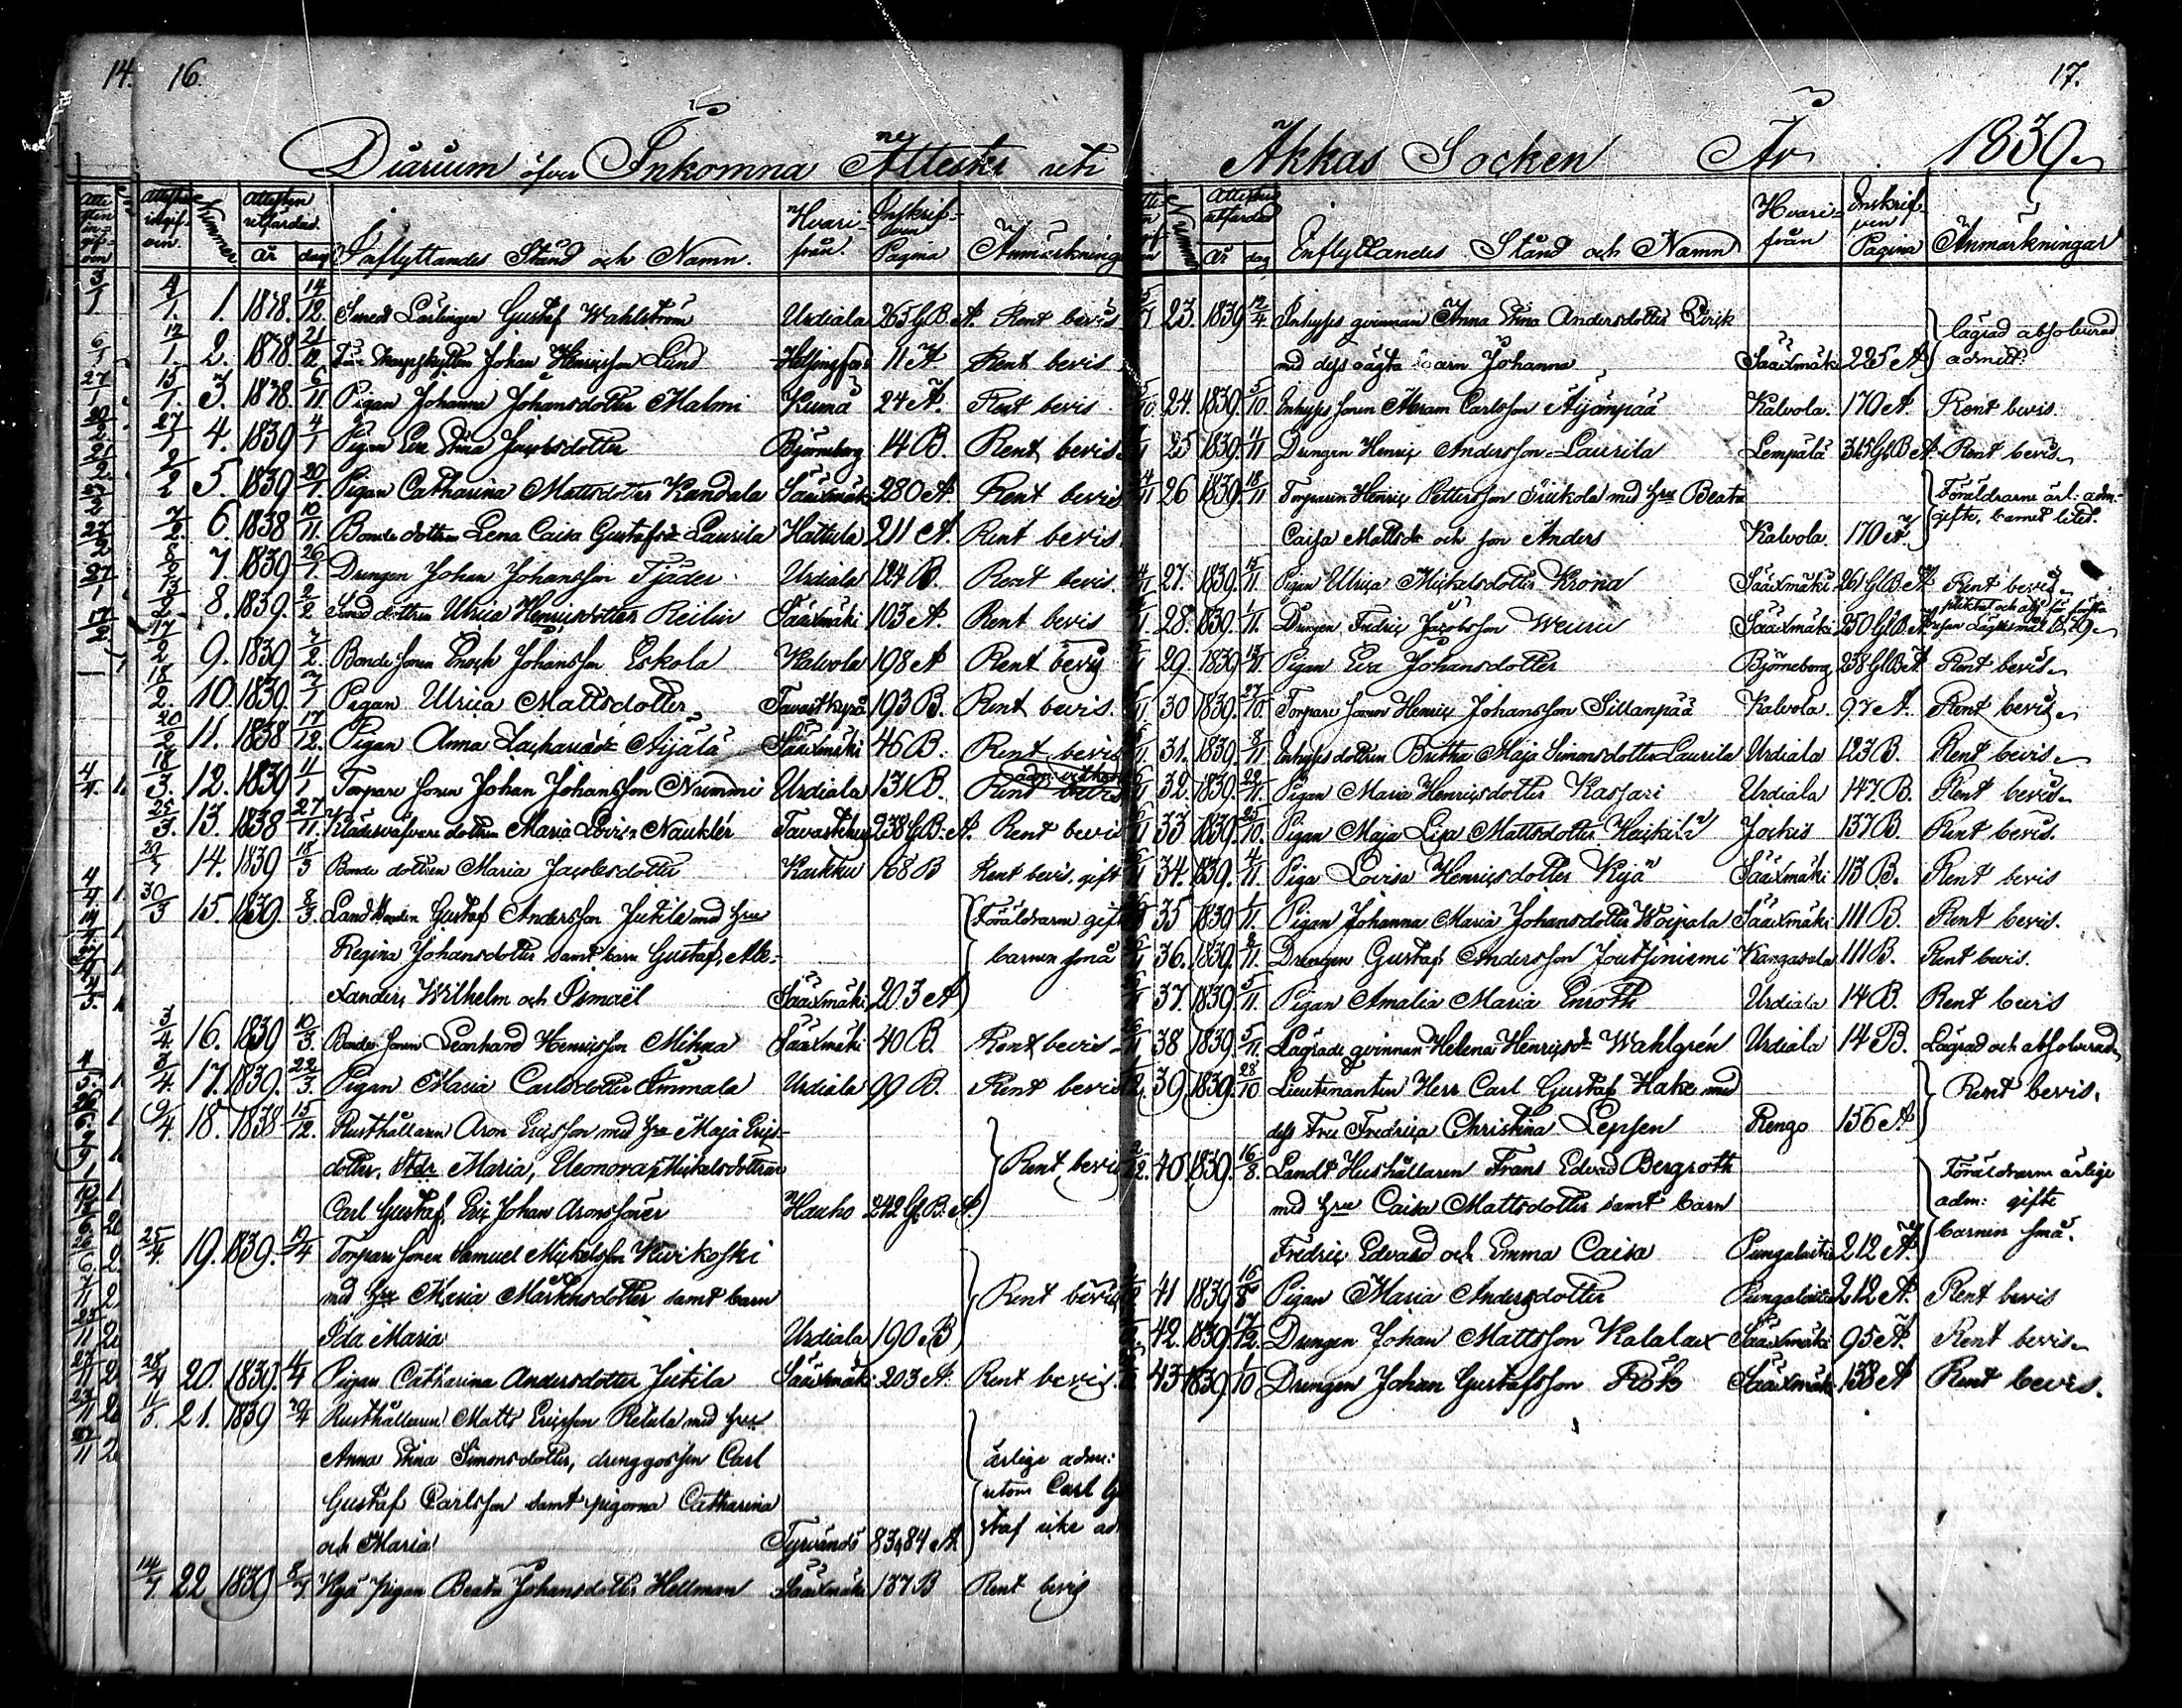 14. 16.
Diarium öfver Inkomna Attester uti
Attesten ingifven. Nummer Attesten utfärdad. år dag Inflyttandes Stånd och Namn. Hvarifrån. Inskrifven Pagina Anmärkning
4/1. 1. 1838. 14/12. Smeds Lärlingen Gustaf Wahlström Urdiala 265 Gl.B. A. Rent bevis
12/1. 2. 1838. 21/12. Johan Henricsson Lund Helsingfors 11 A Rent bevis
15/1. 3. 1838. 6/11 Pigan Johanna Johansdotter Malmi Kumå 24 A. Rent bevis
27/1. 4. 1839 4/1 Pigan Eva Stina Jacobsdotter Björneborg 14 B. Rent bevis
2/2 5. 1839 20/1. Pigan Catharina Mattsdotter Kandala Sääxmäki 280 A. Rent bevis
7/2. 6. 1838 10/11. Bonde dottren Lena Caisa Gustafsdr Laurila Hattula 211 A. Rent bevis.
8/2 7. 1839 26/1. Drengen Johan Johansson Tjäder Urdiala 124 B. Rent bevis.
8. 1839. 2/2 dottren Ulrica Henricsdotter Reilin Sääxmäki 103 A. Rent bevis
17/2 9. 1839 2. Bonde Sonen Enoch Johansson Eskola Kalvola 198 A Rent bevis
18/2. 10. 1839. 1 Pigan Ulrica Mattsdotter Tavastkyrö 193 B. Rent bevis.
20/2 11. 1838 17/12. Pigan Anna Zachariædr Äijälä Sääxmäki 46 B. Rent bevis
18/3. 12. 1839 11/1 Torpare Sonen Johan Johansson Nummi Urdiala 131 B. Rent bevis
25/3. 13. 1838 27/11. Klädesväfvare dottren Maria Lovisa Nauklér Tavastehus 238 Gl.B. A. Rent bevis
29/3 14. 1839 18/3 Bonde dottren Maria Jacobsdotter Karkku 168 B Rent bevis, gift
30/3 15. 1839. 8/3. Landbonden Gustaf Andersson Jutila med hru
Regina Johansdotter samt barn Gustaf, Ale-
xander, Wilhelm och Ismaël Sääxmäki 203 A Föräldrarne gift barnen små
3/4. 16. 1839 10/3. Bonde Sonen Leonhard Henricsson Mihna Sääxmäki 40 B. Rent bevis
3/4. 17. 1839. 22/3. Pigan Maria Carlsdotter Immala Urdiala 99 B. Rent bevis
9/4. 18. 1838 15/12. Rusthållaren Aron Ericsson med hru Maja Erics-
dotter, Maria, Eleonora Mickelsdöttrar Rent bevis
Carl Gustaf, Eric Johan Aronssöner Hauho 242 Gl.B. A.
25/4. 19. 1839. 19/4 Torpare Sonen Samuel Mickelsson Kivikoski
med hru Maria Markusdotter samt barn Rent bevis
Ida Maria Urdiala 190 B
28/4 20. 1839. 4/4 Pigan Catharina Andersdotter Jutila Sääxmäki 203 A. Rent bevis.
11/5. 21. 1839 20/4 Rusthållaren Matts Ericsson Retula med hru
Anna Stina Simonsdotter, drenggossen Carl ärlige adm:
Gustaf Carlsson samt pigorna Catharina utom Carl Gu
och Maria Tyrvändö 83,84 A staf icke ad
14/7. 22 1839 8/7 Nya pigan Beata Johansdotter Hellman Sääxmäki 187 B Rent bevis
17.
Akkas Socken År 1839
Nummer Attesten utfärdad År dag Inflyttandes Stånd och Namn Hvarifrån Inskrifven Pagina Anmärkningar
23. 1839 12/4 Inhyses qvinnan Anna Stina Andersdotter
med dess oägta barn Johanna Sääxmäki 225 A lägrad absolverad admitt:
24. 1839. 5/10 Inhyses Sonen Abram Carlsson Äijänpää Kalvola. 170 A. Rent bevis.
25 1839. 4/11 Drengen Henric Andersson Laurila Lempälä 315 Gl.B A. Rent bevis
26 1839. 18/11 Torparen Henric Pettersson med hru Beata Föräldrarne ärl: adm-
Caisa Mattsdr och son Anders Kalvola. 170 A gifte, barnet litet.
27. 1839. 11. Pigan Ulrica Mickelsdotter Krona Sääxmäki 261 Gl.B. A. Rent bevis
28. 1839. 1/11. Drengen Fredric Jacobsson Sääxmäki 250 Gl.B. A
29 1839 11. Pigan Eva Johansdotter Björneborg 238 Gl.B. A Rent bevis
30 1839. 27/10. Torpare Sonen Henric Johansson Sillanpää Kalvola. 97 A. Rent bevis
31. 1839. 8/11 Inhyses dottren Britha Maja Simonsdotter Laurila Urdiala 123 B. Rent bevis
32. 1839. 22/11. Pigan Maria Henricsdotter Kassari Urdiala 147 B. Rent bevis
33 1839 25/10. Pigan Maja Lisa Mattsdotter Heikkilä Jockis 137 B. Rent bevis.
34. 1839. 4/11. Piga Lovisa Henricsdotter Kyjä Sääxmäki 113 B. Rent bevis
35 1839 1/11. Pigan Johanna Maria Johansdotter Woipala Sääxmäki 111 B. Rent bevis.
36. 1839. 8/11. Drengen Gustaf Andersson Joutsiniemi Kangasala 111 B. Rent bevis.
37. 1839 5/11. Pigan Amalia Maria Enroth Urdiala 14 B. Rent bevis
38 1839. 5/11. Lägrade qvinnan Helena Henricsdr Wahlgrén Urdiala 14 B. Lägrad och absolverad
39. 1839. 28/10 Lieutenanten Herr Carl Gustaf Hake med
dess Fru Fredrica Christina Lepsen Rengo 156 A Rent bevis.
40. 1839. 16/8. Landt Hushållaren Frans Edvard Bergroth Föräldrarne ärlige
med hru Caisa Mattsdotter samt barn adm: gifte
Fredric Edvard och Emma Caisa Pungalaitio 212 A. barnen små.
41 1839. 16/8 Pigan Maria Andersdotter Pungalaitio 212 A. Rent bevis
42. 1839. 17/12. Drengen Johan Mattsson Kalalax Sääxmäki 95 A. Rent bevis
43 1839 1/10 Drengen Johan Gustafsson Sääxmäki 138 A Rent bevis.